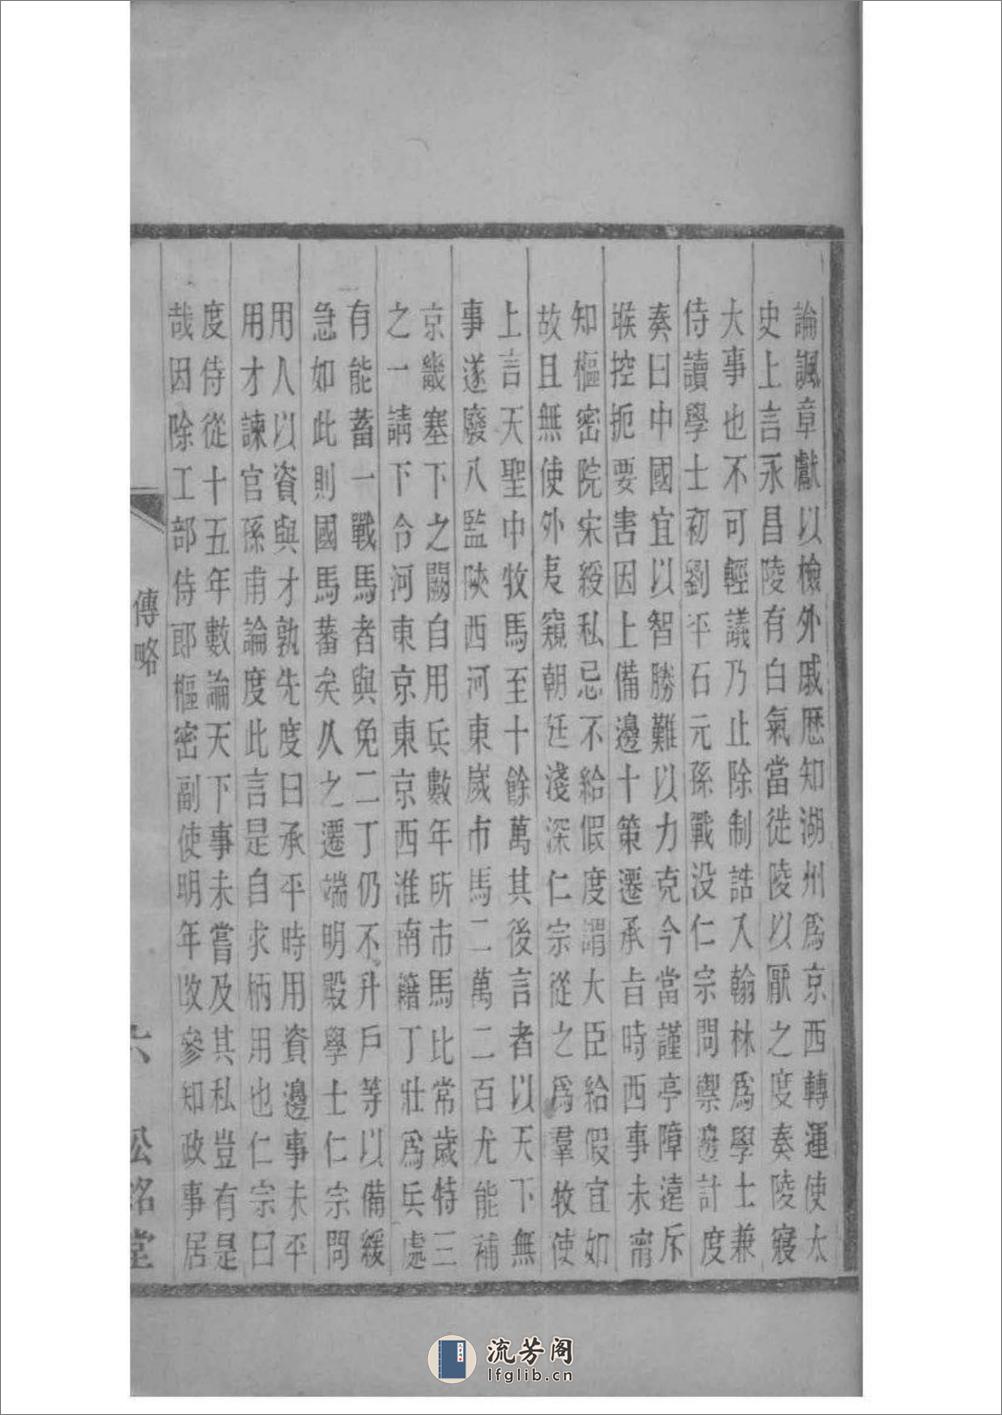 論諷章獻以檢外戚歷知湖州爲京西轉運使太
史上言永昌陵有白氣當徙陵以厭之度奏陵寢
大事也不可輕議乃止除制誥入翰林爲學士兼
侍讀學士初劉平石元孫戰没仁宗問禦邊計度
奏曰中國宜以智勝難以力克今當謹亭障遠斥
堠控扼要害因上備邊十策遷承旨時西事未甯
知樞密院宋綬私忌不給假度謂大臣給假宜如
故且無使外夷窺朝廷淺深仁宗從之爲羣牧使
上言天聖中牧馬至十餘萬其後言者以天下無
事遂廢八監陝西河東歲市馬二萬二百尤能補
京畿塞下之闕自用兵數年所市馬比常歲特三
之一請下令河東京東京西淮南籍丁壯爲兵處
有能蓄一戰馬者與免二丁仍不升戶等以備緩
急如此則國馬蕃矣久之遷端明殿學士仁宗問
用人以資與才孰先度曰承平時用資邊事未平
用才諫官孫甫論度此言是自求柄用也仁宗曰
度侍從十五年數論天下事未嘗及其私豈有是
哉因除工部侍郎樞密副使明年改參知政事居
傳略
六
公銘堂
流芳阁
lfglib.cn